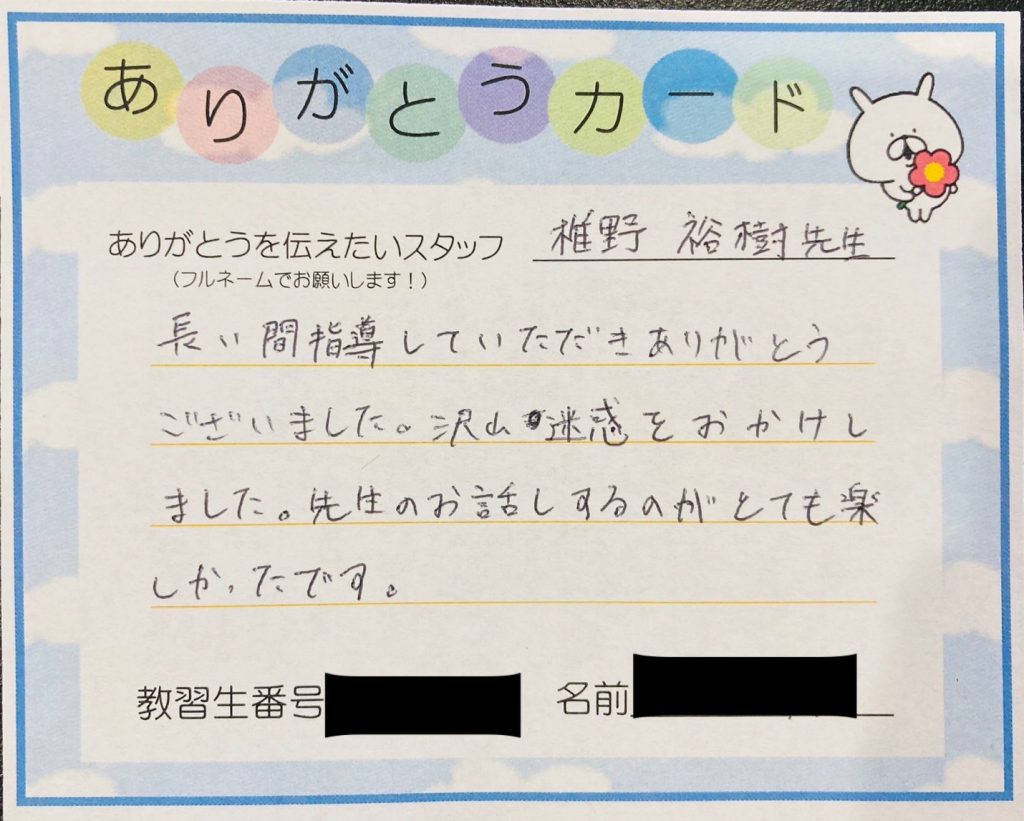 ありがとうカード
ありがとうを伝えたいスタッフ 椎野 裕樹先生
(フルネームでお願いします!)
長い間指導していただきありがとう
ございました。沢山迷惑をおかけし
ました。先生のお話しするのがとても楽
しかったです。
教習生番号 名前